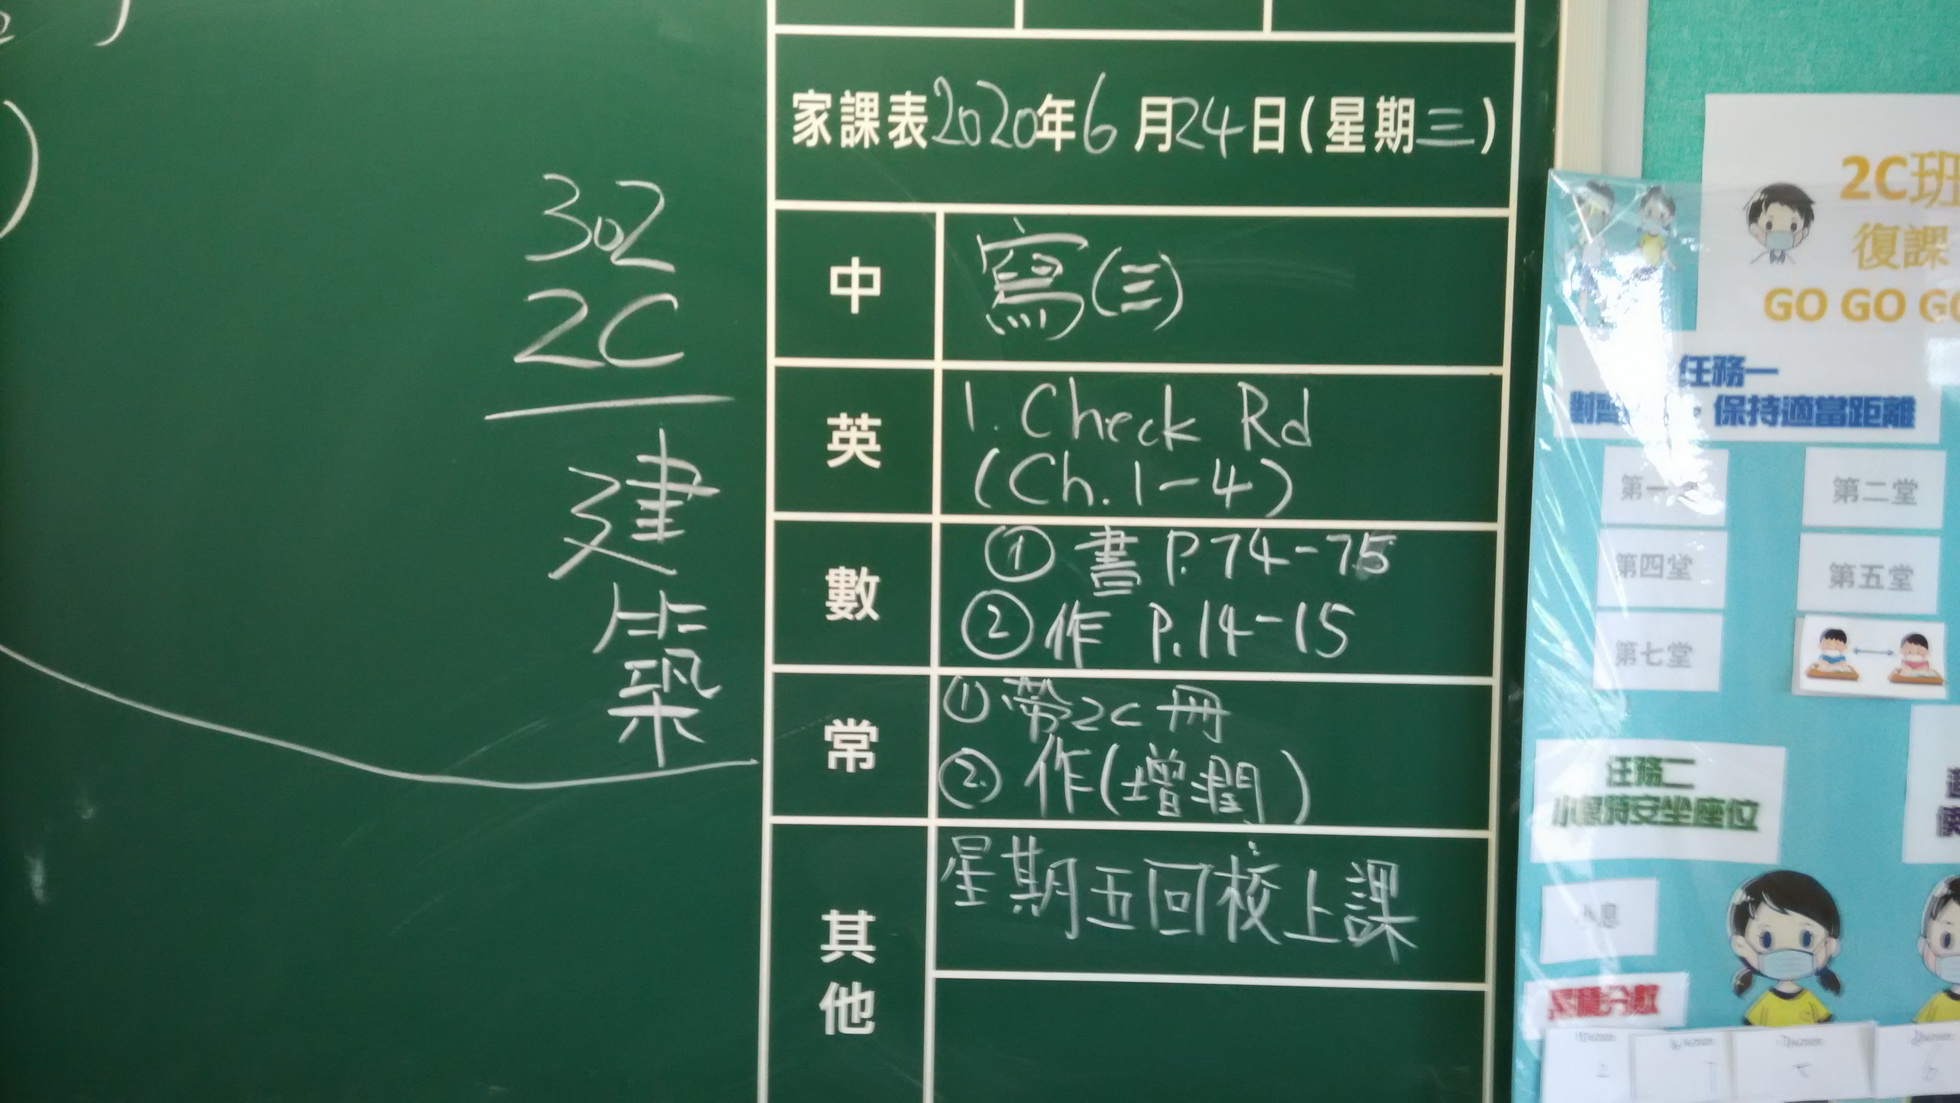 302
2C
建
築
家課表2020年6月24日(星期三)
中
寫(三)
英
1. Check Rd
(Ch.1-4)
數
① 書 P.74-75
② 作 P.14-15
常
① 帶2C冊
② 作(增潤)
其他
星期五回校上課
2C班
復課
GO GO GO
任務一
保持適當距離
第二堂
第四堂
第五堂
第七堂
任務二
小息時安坐座位
小息